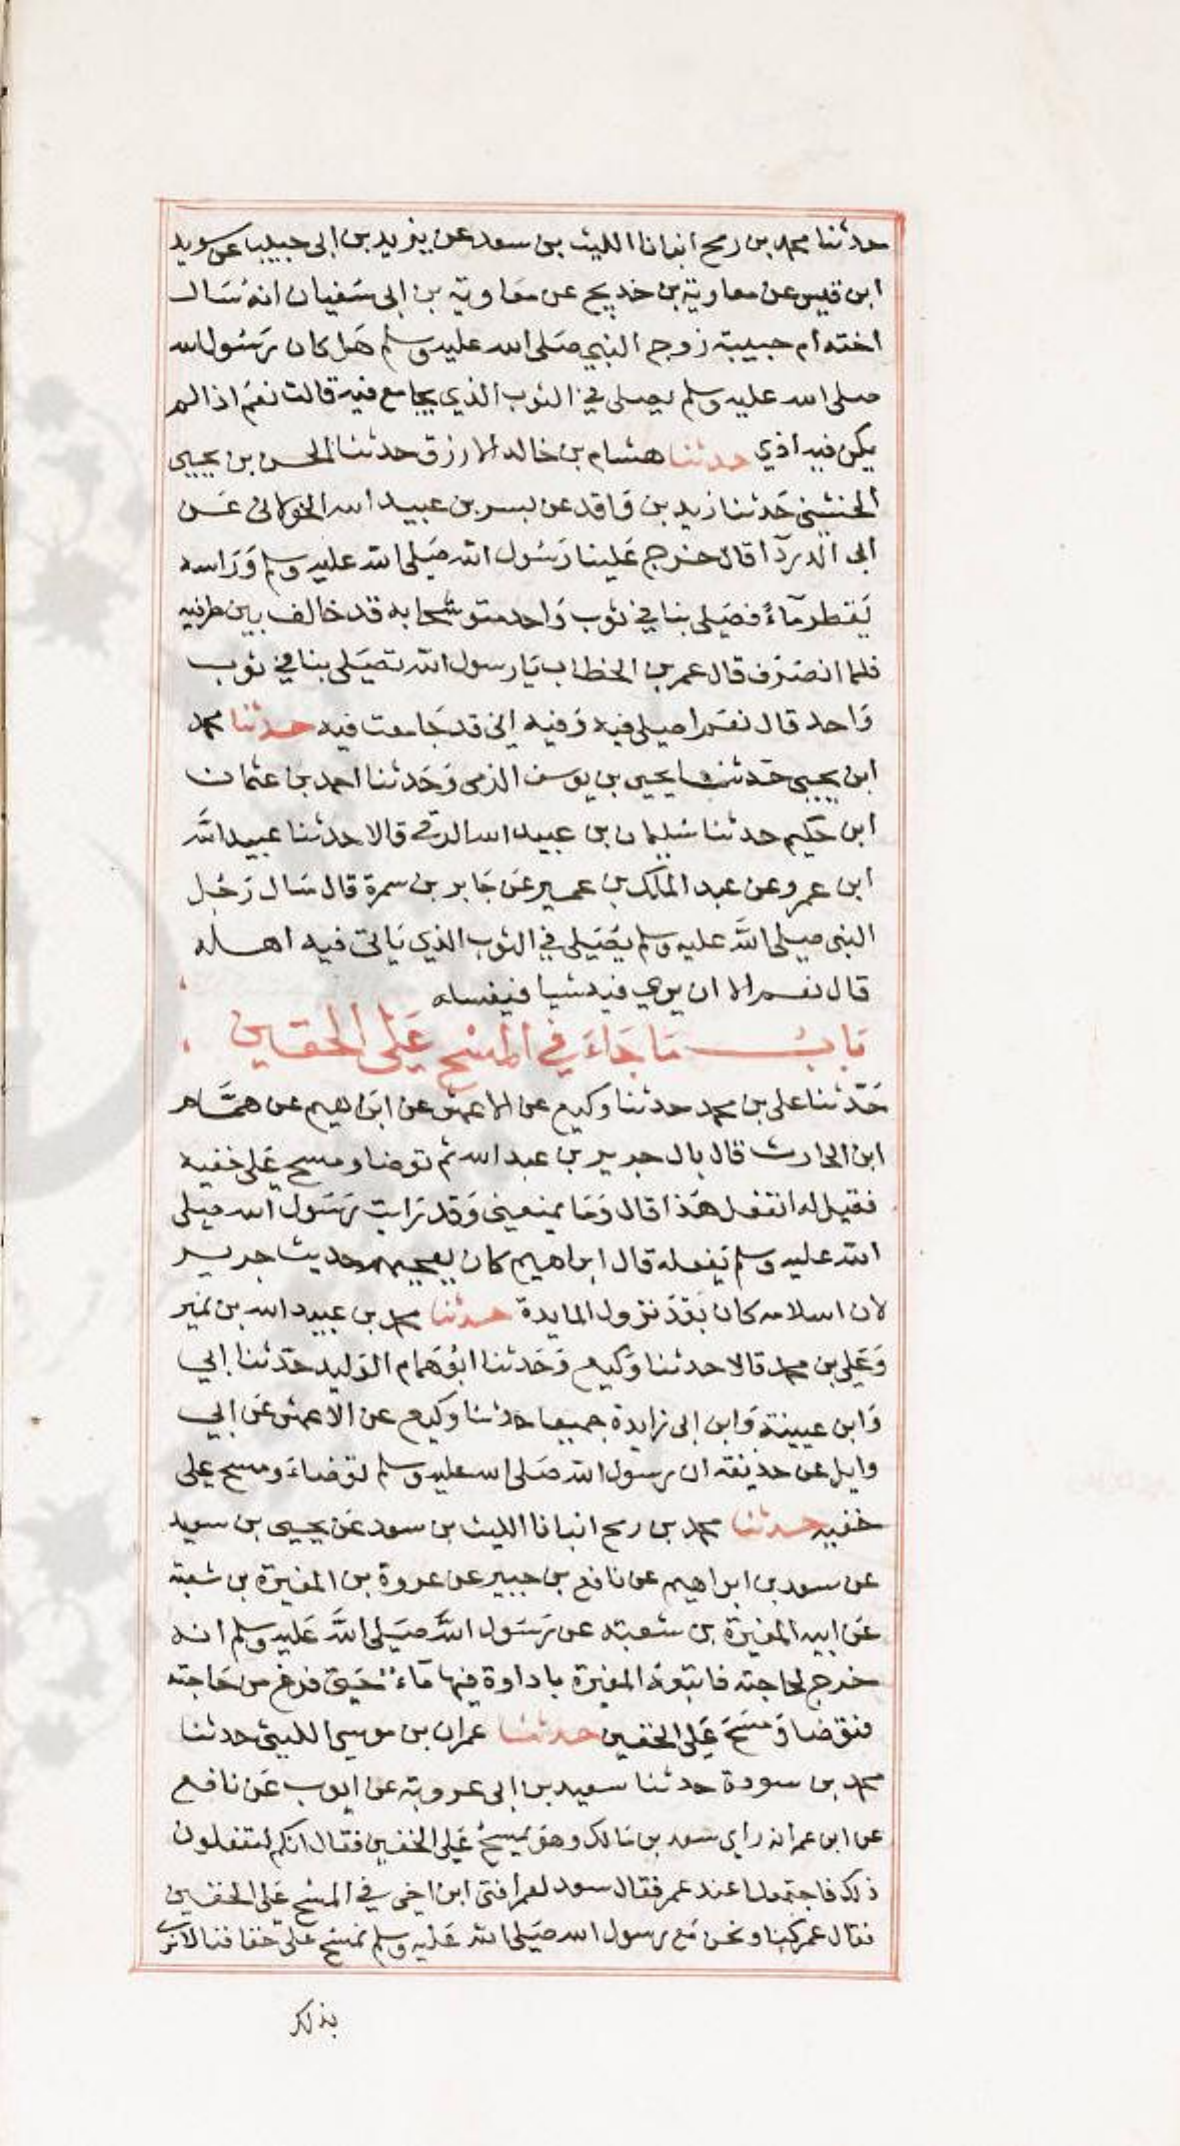 حدثنا محمد بن رمح انبانا الليث بن سعد عن يزيد بن ابي حبيب عن سويد
ابن قيس عن معاوية بن خديج عن معاوية بن ابي سفيان انه سال
اخته ام حبيبة زوج النبي صلى الله عليه وسلم هل كان رسول الله
صلى الله عليه وسلم يصلي في الثوب الذي يجامع فيه قالت نعم اذا لم
يكن فيه اذي حدثنا هشام بن خالد الازرق حدثنا الحسن بن يحيى
الخشني حدثنا زيد بن واقد عن بسر بن عبيد الله الخولاني عن
ابي الدردآ قال خرج علينا رسول الله صلى الله عليه وسلم وراسه
يقطر مآءً فصلى بنا في ثوب واحد متوشحا به قد خالف بين طرفيه
فلما انصرف قال عمر بن الخطاب يا رسول الله تصلى بنا في ثوب
واحد قال نعم اصلي فيه وفيه اني قد جامعت فيه حدثنا محمد
ابن يحيى حدثنا يحيى بن يوسف الذمي وحدثنا احمد بن عثمان
ابن حكيم حدثنا سليمان بن عبيد الله الرقي قالا حدثنا عبيد الله
ابن عمرو عن عبد الملك بن عمير عن جابر بن سمرة قال سال رجل
النبي صلى الله عليه وسلم يصلى في الثوب الذي ياتي فيه اهله
قال نعم الا ان يري فيه شيا فيغسله
باب ما جاء في المسح على الخفين
حدثنا علي بن محمد حدثنا وكيع عن الاعمش عن ابراهيم عن همام
ابن الحارث قال بال جرير بن عبد الله ثم توضا ومسح على خفيه
فقيل له اتفعل هذا قال وما يمنعني وقد رايت رسول الله صلى
الله عليه وسلم يفعله قال ابراهيم كان يعجبهم حديث جرير
لان اسلامه كان بعد نزول المايدة حدثنا محمد بن عبيد الله بن نمير
وعلي بن محمد قالا حدثنا وكيع وحدثنا ابو همام الوليد حدثنا ابي
وابن عيينة وابن ابي زايدة جميعا حدثنا وكيع عن الاعمش عن ابي
وايل عن حذيفة ان رسول الله صلى الله عليه وسلم توضاء ومسح على
خفيه حدثنا محمد بن رمح انبانا الليث بن سعد عن يحيى بن سعيد
عن سعد بن ابراهيم عن نافع بن جبير عن عروة بن المغيرة بن شعبة
عن ابيه المغيرة بن شعبة عن رسول الله صلى الله عليه وسلم انه
خرج لحاجته فاتبعه المغيرة باداوة فيها مآء حتى فرغ من حاجته
فتوضا ومسح على الخفين حدثنا عمران بن موسى الليثي حدثنا
محمد بن سودة حدثنا سعيد بن ابي عروبة عن ايوب عن نافع
عن ابن عمر انه راي سعد بن مالك وهو يمسح على الخفين فقال انكم لتفعلون
ذلك فاجتمعا عند عمر فقال سعد لعمر افتى ابن اخي في المسح على الخفين
فقال عمر كنا ونحن مع رسول الله صلى الله عليه وسلم نمسح على خفافنا لا نرى
بذلك